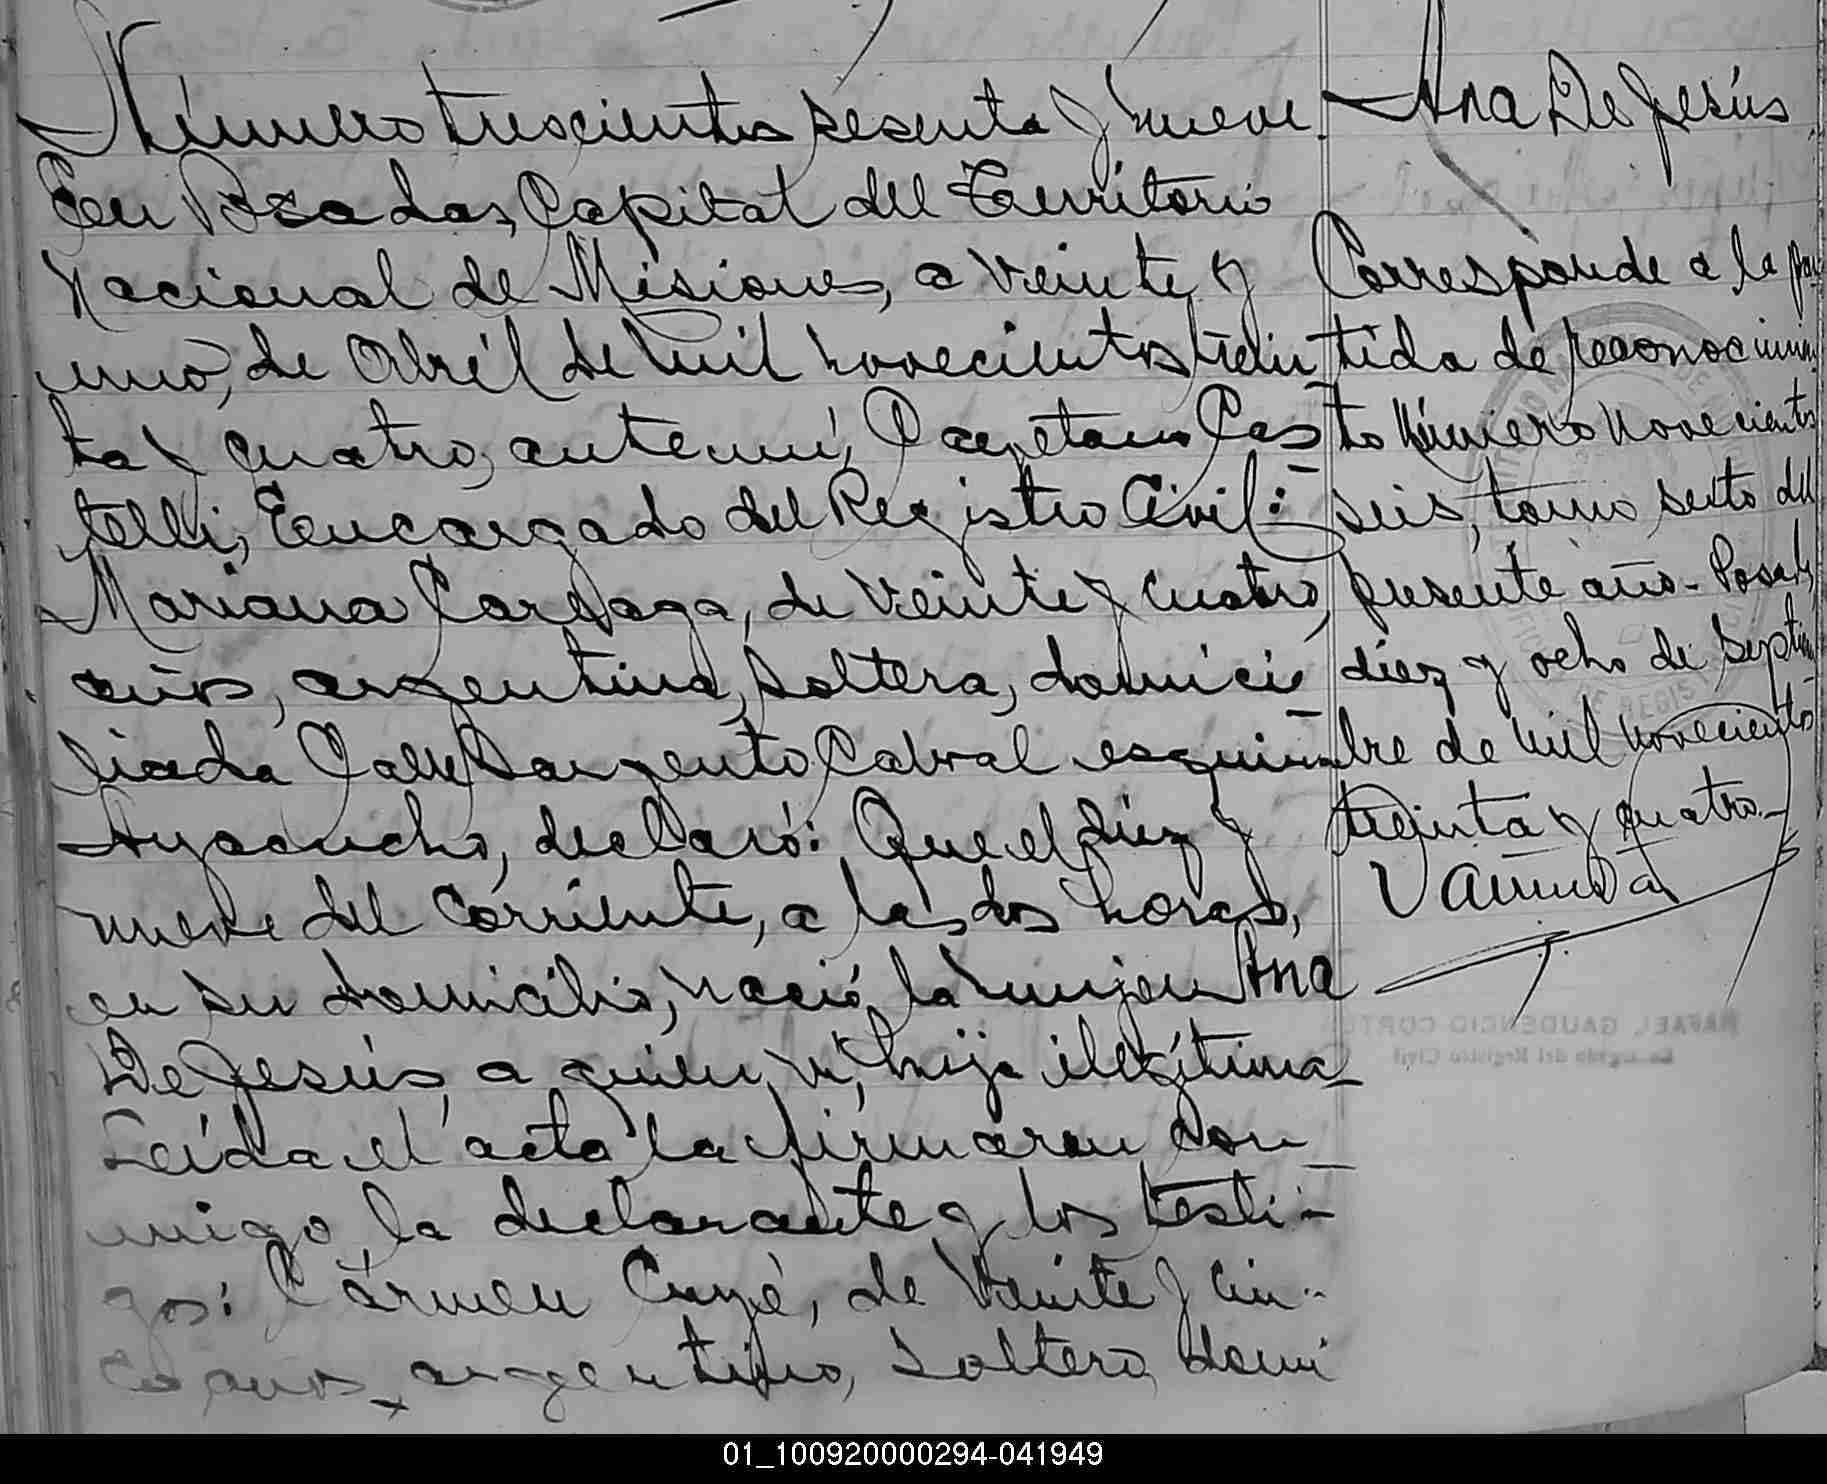 Número trescientos sesenta y nueve.
En Posadas, Capital del Territorio
Nacional de Misiones, a veinte y
uno, de Abril de mil novecientos trein
ta y cuatro, ante mí, Cayetano Cas
telli, Encargado del Registro Civil:
Mariana, de veinte y cuatro,
años, argentina, soltera, domici
liada Calle Sargento Cabral esquina
Ayacucho, declaró: Que el diez y
nueve del corriente, a las dos horas,
en su domicilio, nació la mujer Ana
De Jesús, a quien ví, hija ilegítima
Leída el acta la firmaron con
migo, la declarante y los testi-
gos: Cármen, de veinte y cin-
co años, argentino, soltero, domi
Ana De Jesús
Corresponde a la par
tida de reconocimien
to número novecientos
seis, tomo sexto del
presente año - Posadas,
diez y ocho de septiem
bre de mil novecientos
treinta y cuatro.-
RAFAEL GAUDENCIO CORTES
Encargado del Registro Civil
01_100920000294-041949